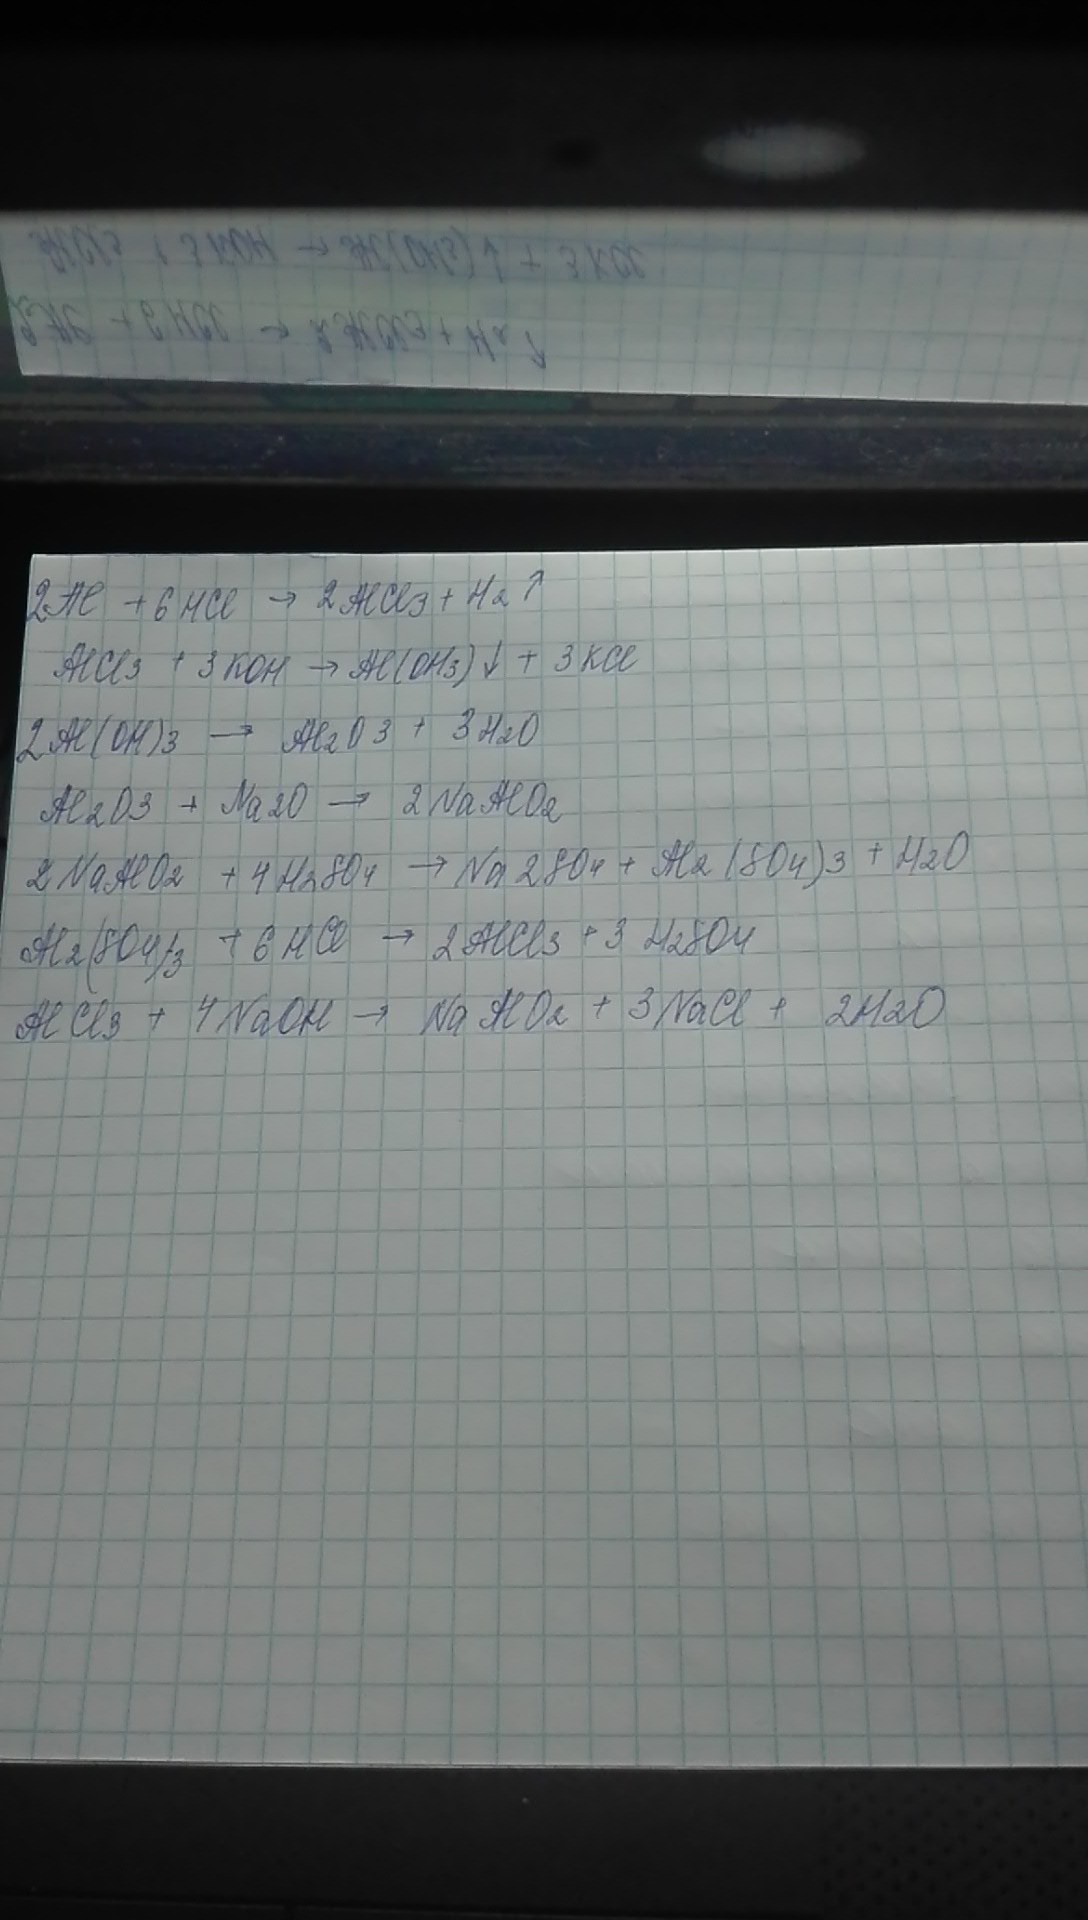 2Al + 6HCl → 2AlCl3 + H2↑
AlCl3 + 3KOH → Al(OH3)↓ + 3KCl
2Al(OH)3 → Al2O3 + 3H2O
Al2O3 + Na2O → 2NaAlO2
2NaAlO2 + 4H2SO4 → Na2SO4 + Al2(SO4)3 + H2O
Al2(SO4)3 + 6HCl → 2AlCl3 + 3H2SO4
AlCl3 + 4NaOH → NaAlO2 + 3NaCl + 2H2O